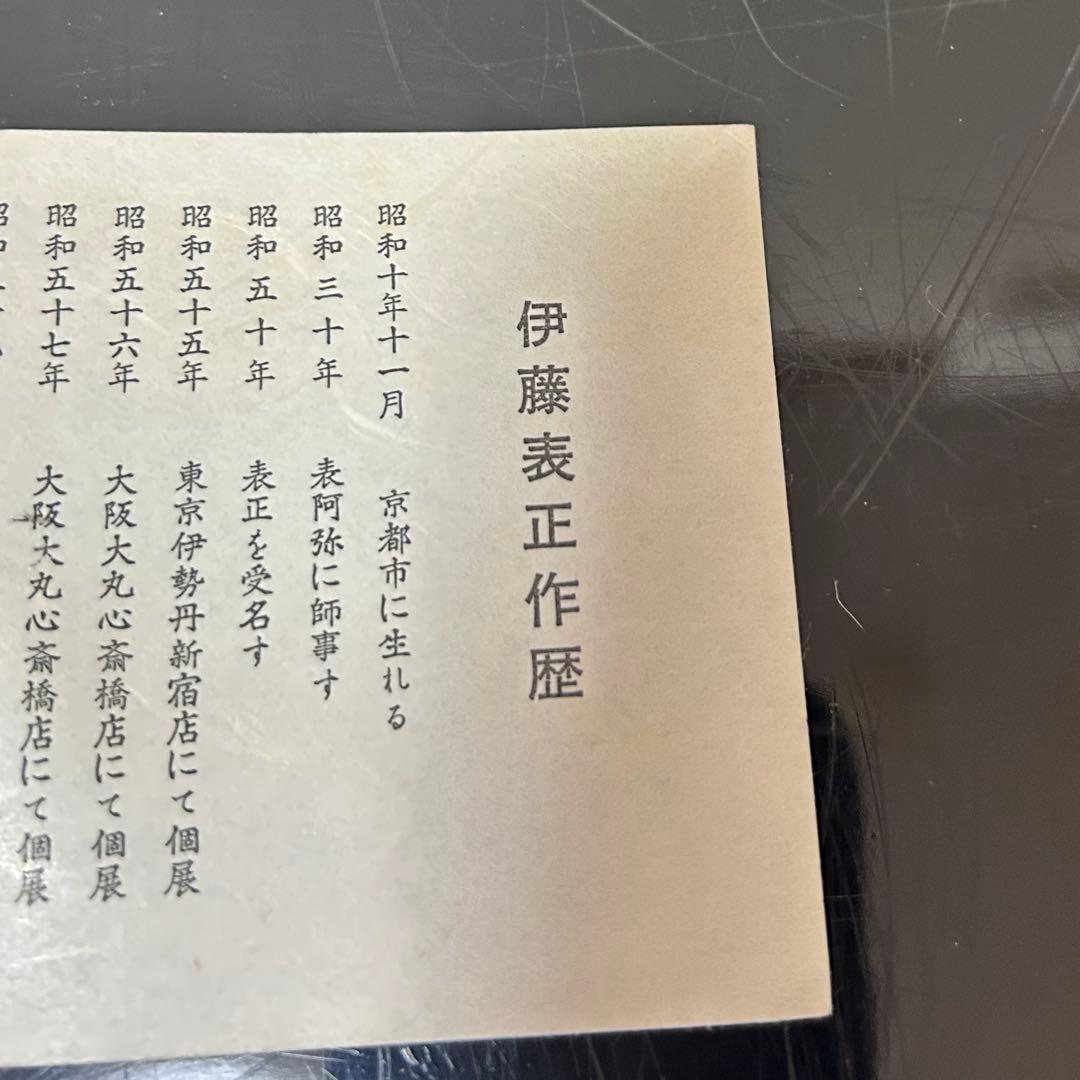 伊藤表正作歴
昭和十年十一月 京都市に生れる
昭和三十年 表阿弥に師事す
昭和五十年 表正を受名す
昭和五十五年 東京伊勢丹新宿店にて個展
昭和五十六年 大阪大丸心斎橋店にて個展
昭和五十七年 大阪大丸心斎橋店にて個展